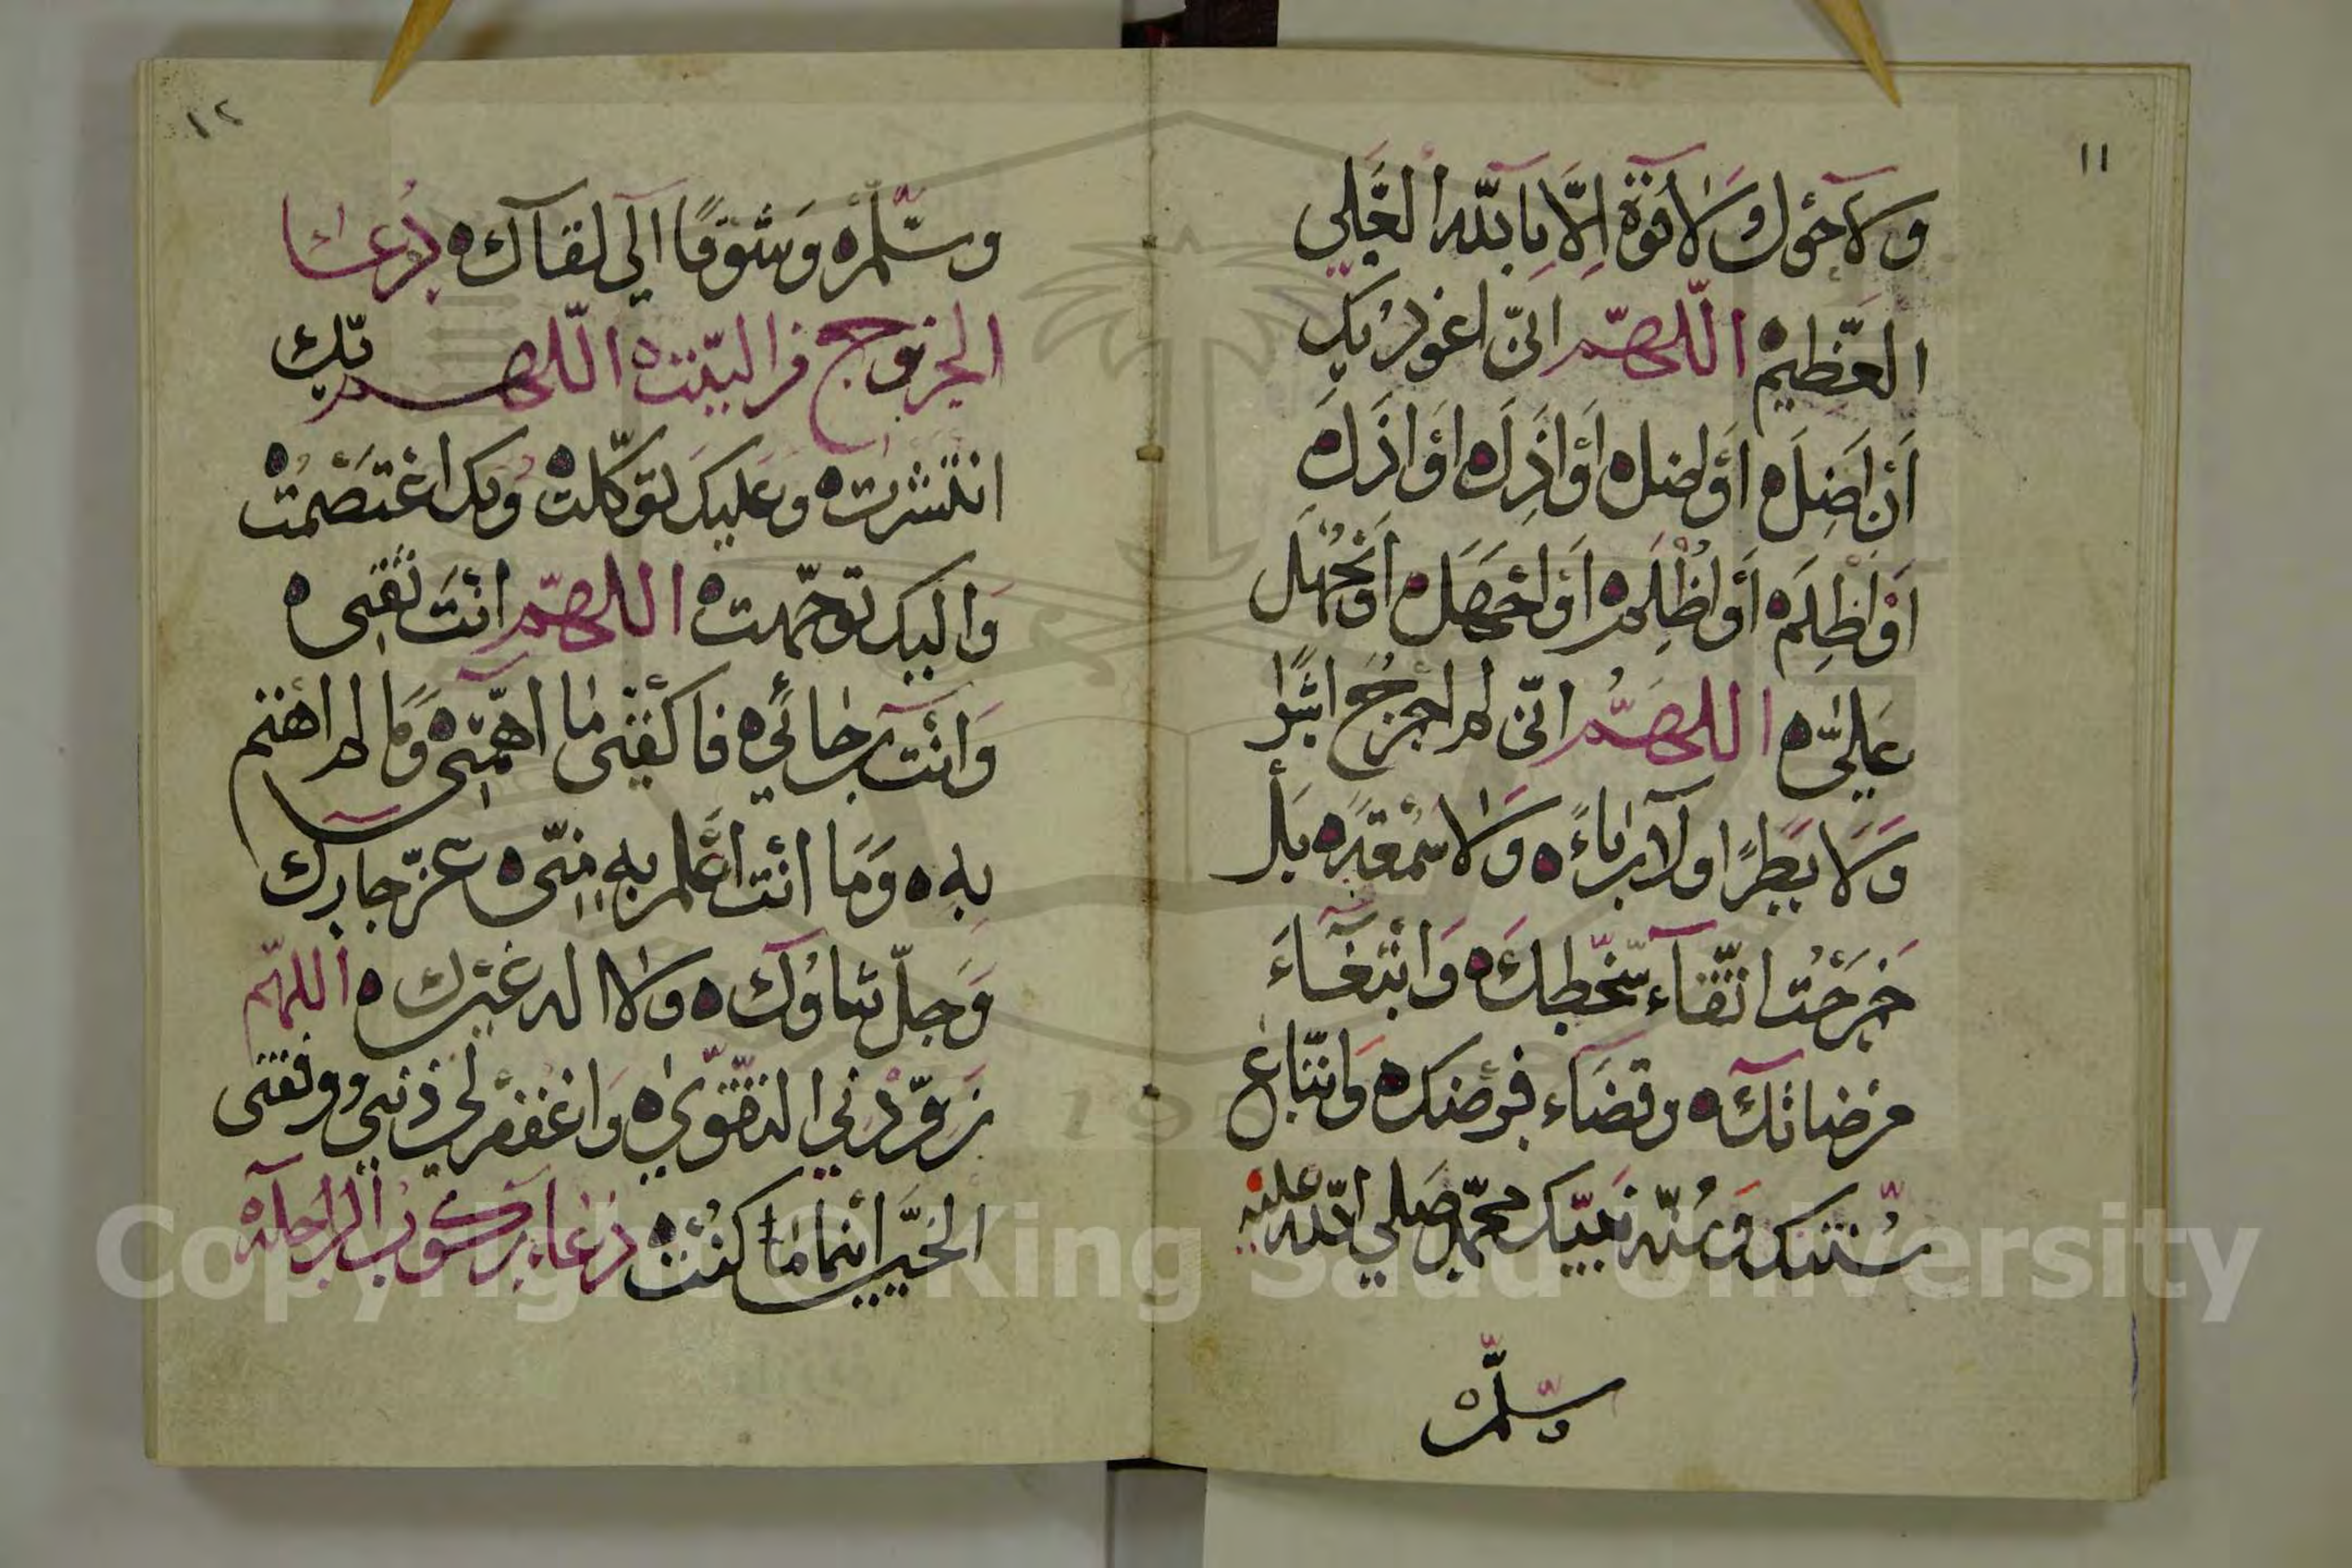 ١١
ولا حول ولا قوة إلا بالله العلي
العظيم اللهم اني اعوذ بك
أن اضل أو اضل أو اذل أو اذل
أو اظلم أو اظلم أو اجهل او يجهل
علي اللهم اني لم اخرج اشرا
ولا بطرا ولا رياء ولا سمعة بل
خرجت اتقاء سخطك وابتغاء
مرضاتك وقضاء فرضك واتباع
سنتك وسنة نبيك محمد صلى الله عليه
وسلم
١٢
وسلم وشوقا الى لقآئك دعا
الخروج من البيت اللهم بك
انتشرت وعليك توكلت وبك اعتصمت
واليك توجهت اللهم انت ثقتي
وانت رجائي فاكفني ما اهمني وما لم اهتم
به وما انت اعلم به مني عز جارك
وجل ثناؤك ولا اله غيرك اللهم
زودني التقوى واغفر لي ذنبي ووفقني
الخير اينما كنت دعاء ركوب الراحلة
Copyright © King Saud University
195